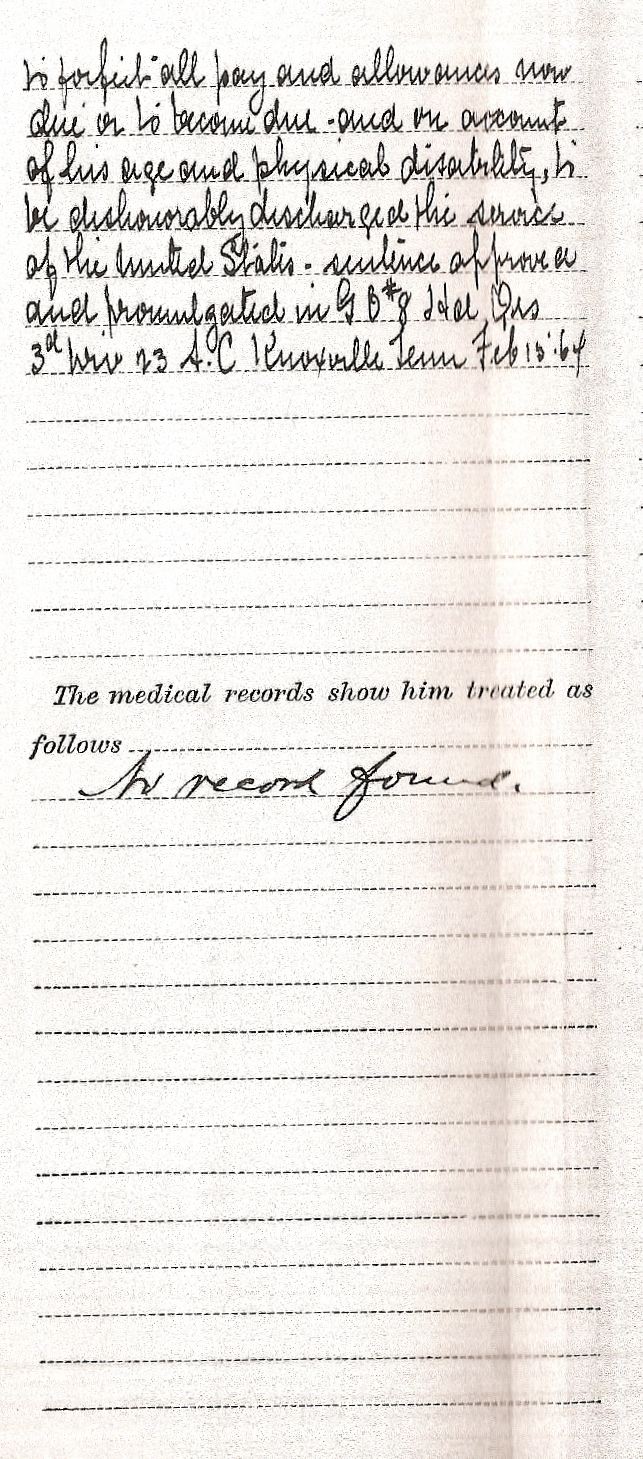 to forfeit all pay and allowances now
due or to become due - and on account
of his age and physical disability, to
be dishonorably discharged the service
of the United States - sentence approved
and promulgated in G O #8 Hd Qrs
3d Div 23 A.C Knoxville Tenn Feb 15 '64
The medical records show him treated as
follows
No record found.